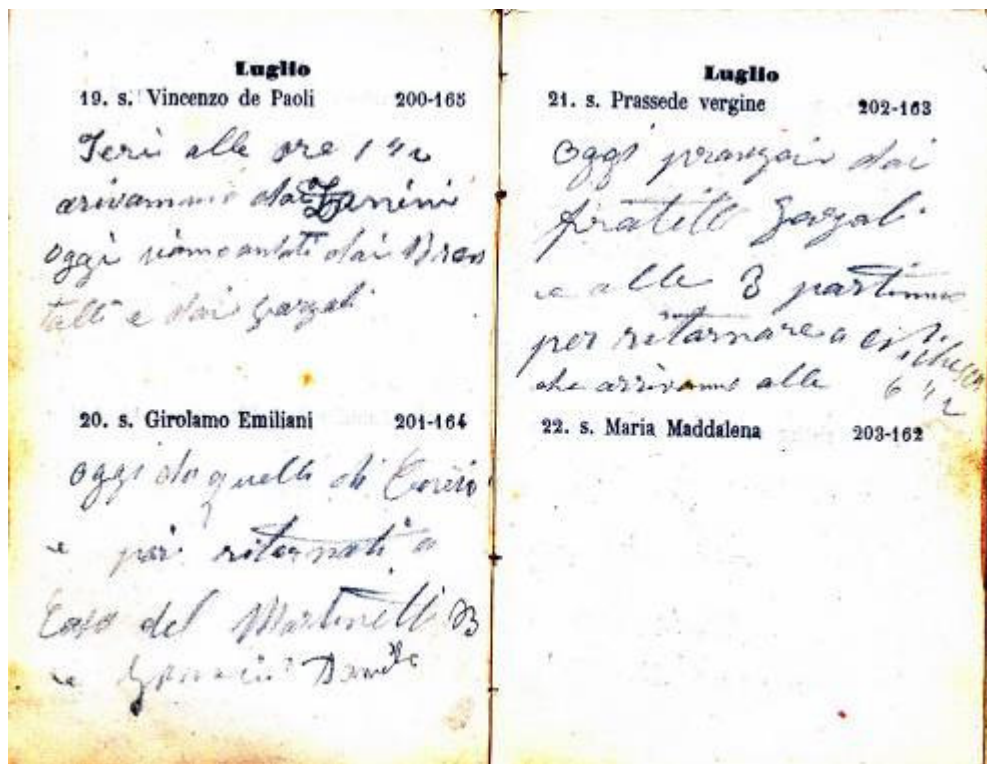 Luglio
19. s. Vincenzo de Paoli 200-165
Ieri alle ore 1 1/2
arivammo dai Zannini
oggi siamo andati dai Bron
talli e dai Gazzali
20. s. Girolamo Emiliani 201-164
oggi da quelli di
e poi ritornati a
Casa del Martinelli B
e
Luglio
21. s. Prassede vergine 202-163
Oggi pranzai dai
fratelli Gazzali
e alle 3 partimmo
per ritornare a
che arrivammo alle 6 1/2
22. s. Maria Maddalena 203-162